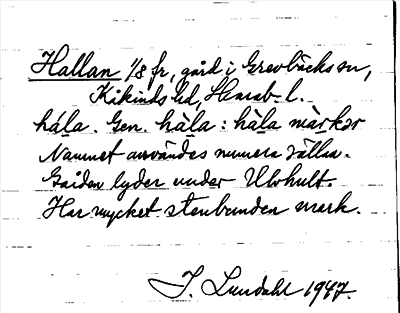 Hallan 1/8 fr, gård i Grevbäcks sn,
Kåkinds hd, Skarab. l.
hála. Gen. hàla : hàla màrkər
Namnet användes numera sällan.
Gården lyder under Ulvhult.
Har mycket stenbunden mark.
J. Lundahl 1947.